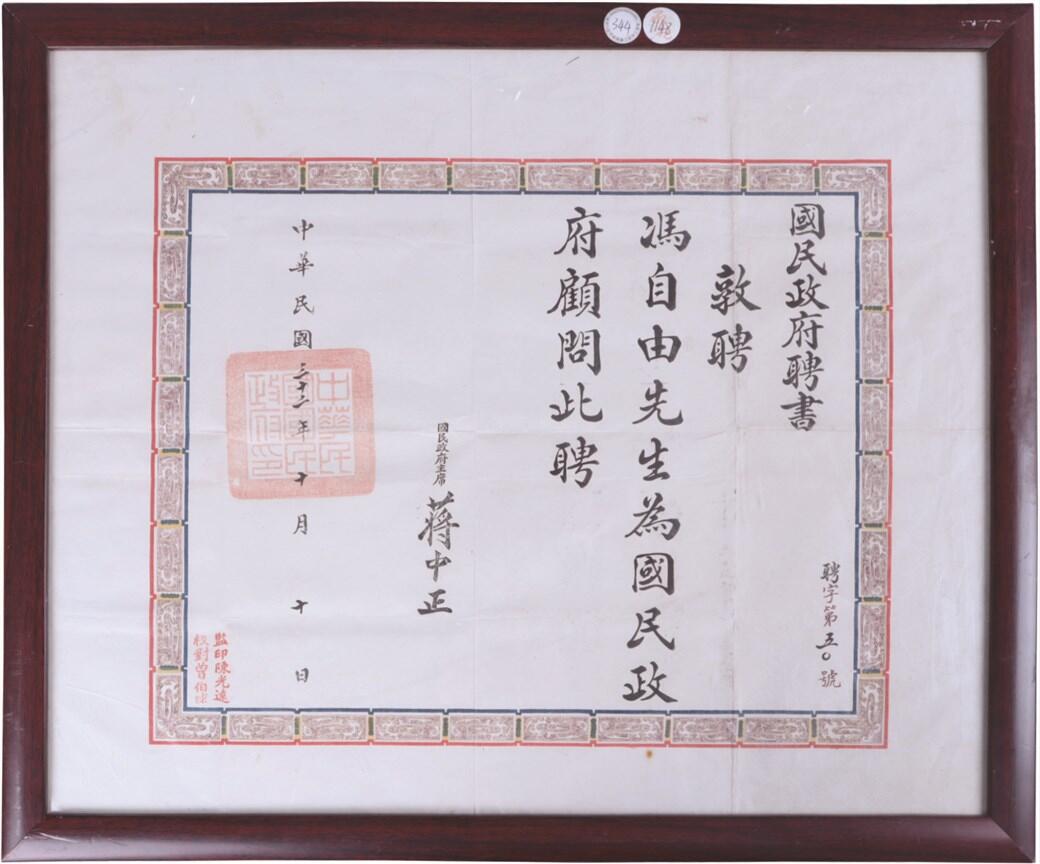 國民政府聘書
敦聘
馮自由先生為國民政
府顧問此聘
國民政府主席 蔣中正
中華民國三十二年十月十日
聘字第五〇號
中華民國國民政府印
監印陳光遠
校對曾伯
344
1148